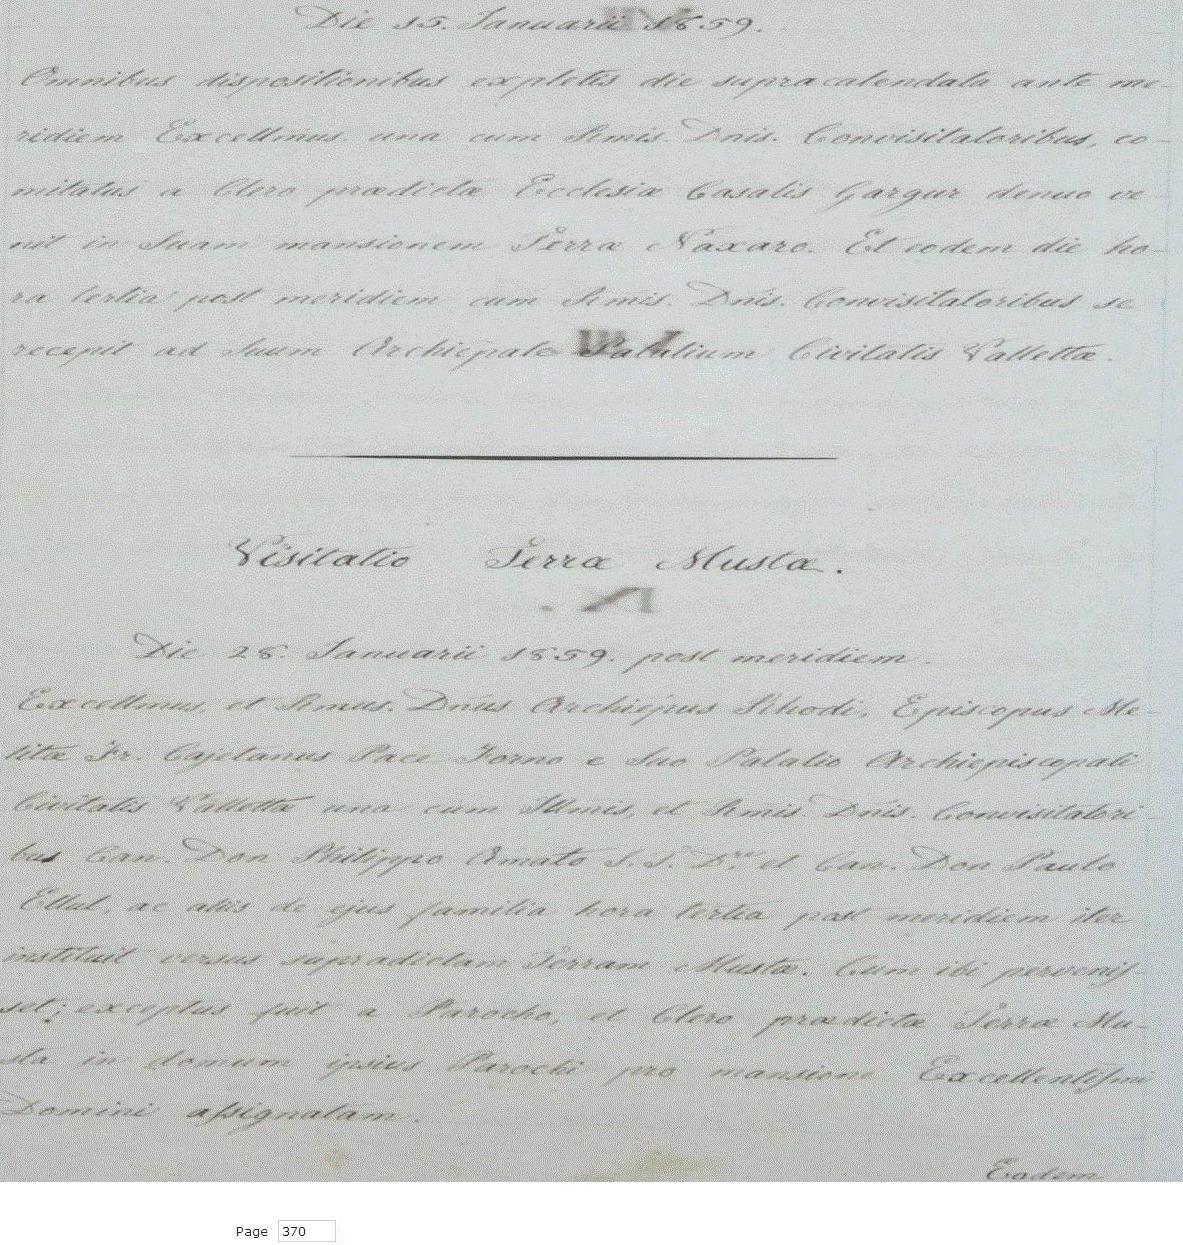 Die 15. Januarii 1859.
Omnibus dispositionibus expletis die supracalendata ante me-
ridiem Excellmus. una cum Rmis. Dnis. Convisitatoribus, co-
mitatus a Clero prædictæ Ecclesiæ Casalis Gargur denuo ve
nit in Suam mansionem Terræ Naxaro. Et eodem die ho-
ra tertia post meridiem cum Rmis. Dnis. Convisitatoribus se
recepit ad Suum Archiepale Palatium Civitatis Vallettæ.
Visitatio Terræ Mustæ.
Die 28. Januarii 1859. post meridiem.
Excellmus, et Rmus. Dnus Archiepus Rhodi, Episcopus Me-
litæ Fr. Cajetanus Pace Forno e Suo Palatio Archiepiscopali
Civitatis Vallettæ una cum Illmis, et Rmis. Dnis. Convisitatori-
bus Can. Don Philippo Amato S. T. D.re et Can. Don Paulo
Ellul, ac aliis de ejus familia hora tertia post meridiem iter
instituit versus supradictam Terram Mustæ. Cum ibi pervenis-
set; exceptus fuit a Parocho, et Clero prædictæ Terræ Mu-
sta in domum ipsius Parochi pro mansione Excellentissimi
Domini assignatam.
Eodem
Page 370